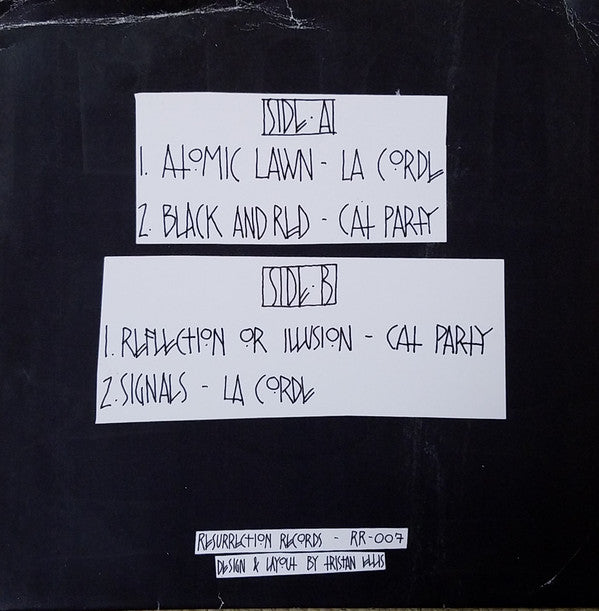 SIDE·A
1. ATOMIC LAWN - LA CORDE
2. BLACK AND RED - CAT PARTY
SIDE·B
1. REFLECTION OR ILLUSION - CAT PARTY
2. SIGNALS - LA CORDE
RESURRECTION RECORDS - RR-007
DESIGN & LAYOUT BY TRISTAN ELLIS